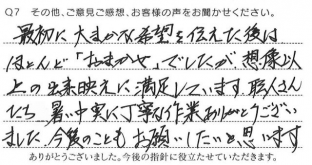 Q7 その他、ご意見ご感想、お客様の声をお聞かせください。
最初に大まかな希望を伝えた後は
ほとんど「おまかせ」でしたが、想像以
上の出来映えに満足しています。職人さん
たち、暑い中実に丁寧な作業ありがとうござい
ました。今後のこともお願いしたいと思います
ありがとうございました。今後の指針に役立たせていただきます。